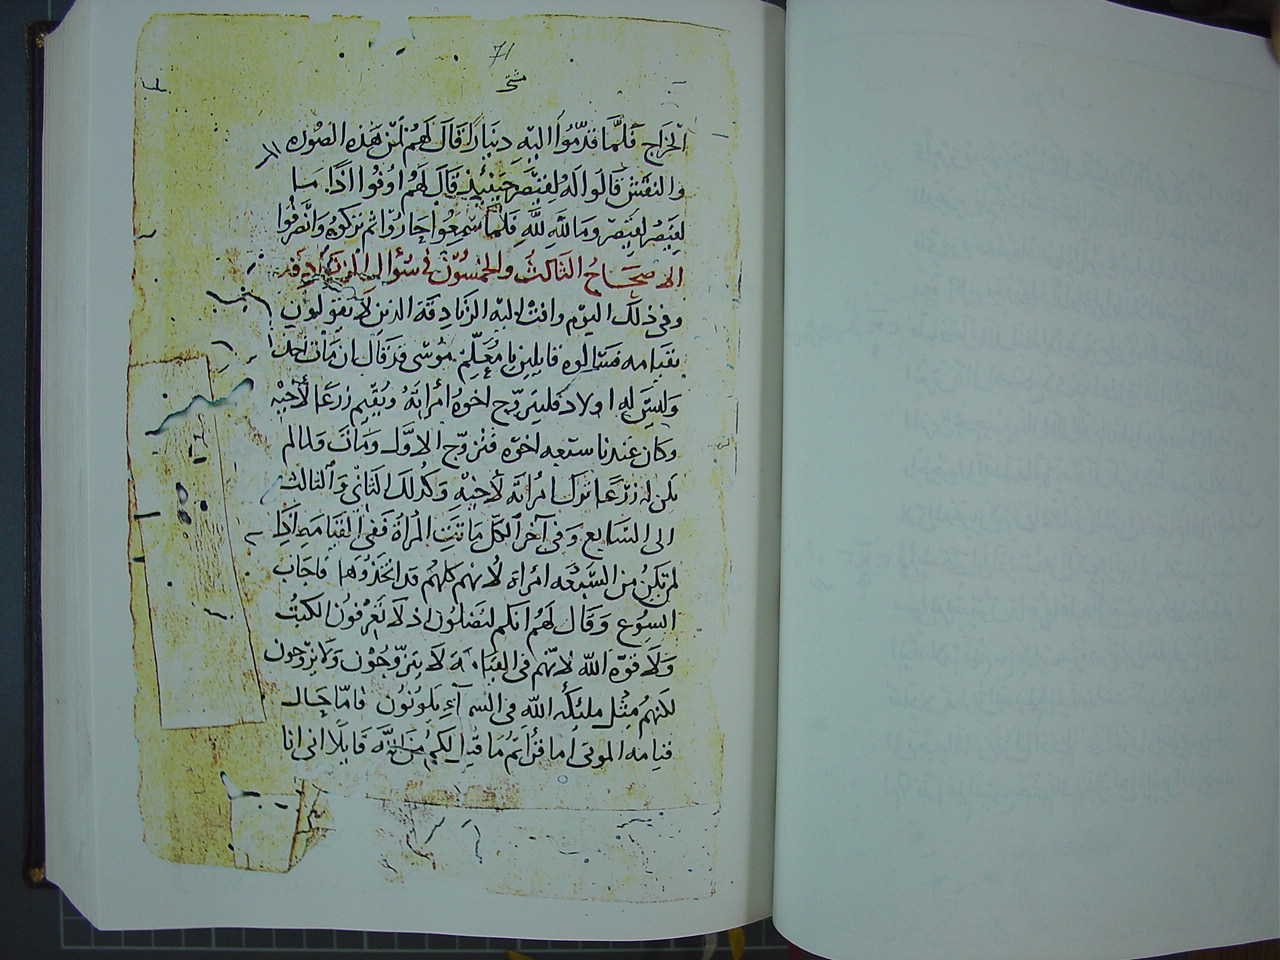 71
متى
الخراج فلمّا قدّموا اليه دينارًا قال لهم لمن هذه الصوره
والنقش قالوا له لقيصر حينئذ قال لهم اوفوا اذًا ما
لقيصر لقيصر وما لله لله فلمّا سمعوا حاروا ثم تركوه وانصرفوا
الاصحاح الثالث والخمسون في سؤال الزنادقه
وفي ذلك اليوم وافت اليه الزنادقة الذين لا يقولون
بقيامه فسالوه قايلين يا معلّم موسى قد قال ان مات احد
وليس له اولاد فليتزوّج اخوه امرأته ويقيم زرعًا لأخيه
وكان عندنا سبعه اخوة فتزوّج الاوّل ومات ولما لم
يكن له زرعًا ترك امرأته لأخيه وكذلك الثاني والثالث
الى السابع وفي آخر الكلّ ماتت المرأة ففي القيامه اذًا
لمن تكون من السّبعه امرأة لانهم كلهم قد اتخذوها فاجاب
اليسوع وقال لهم انكم لتضلون اذ لا تعرفون الكتب
ولا قوّة الله لانّهم في القيامة لا يتزوّجون ولا يزوّجون
لكنهم مثل مليكه الله في السماء يكونون فامّا حال
قيامه الموتى اما قرأتم ما قيل لكم من الله قايلًا اني انا